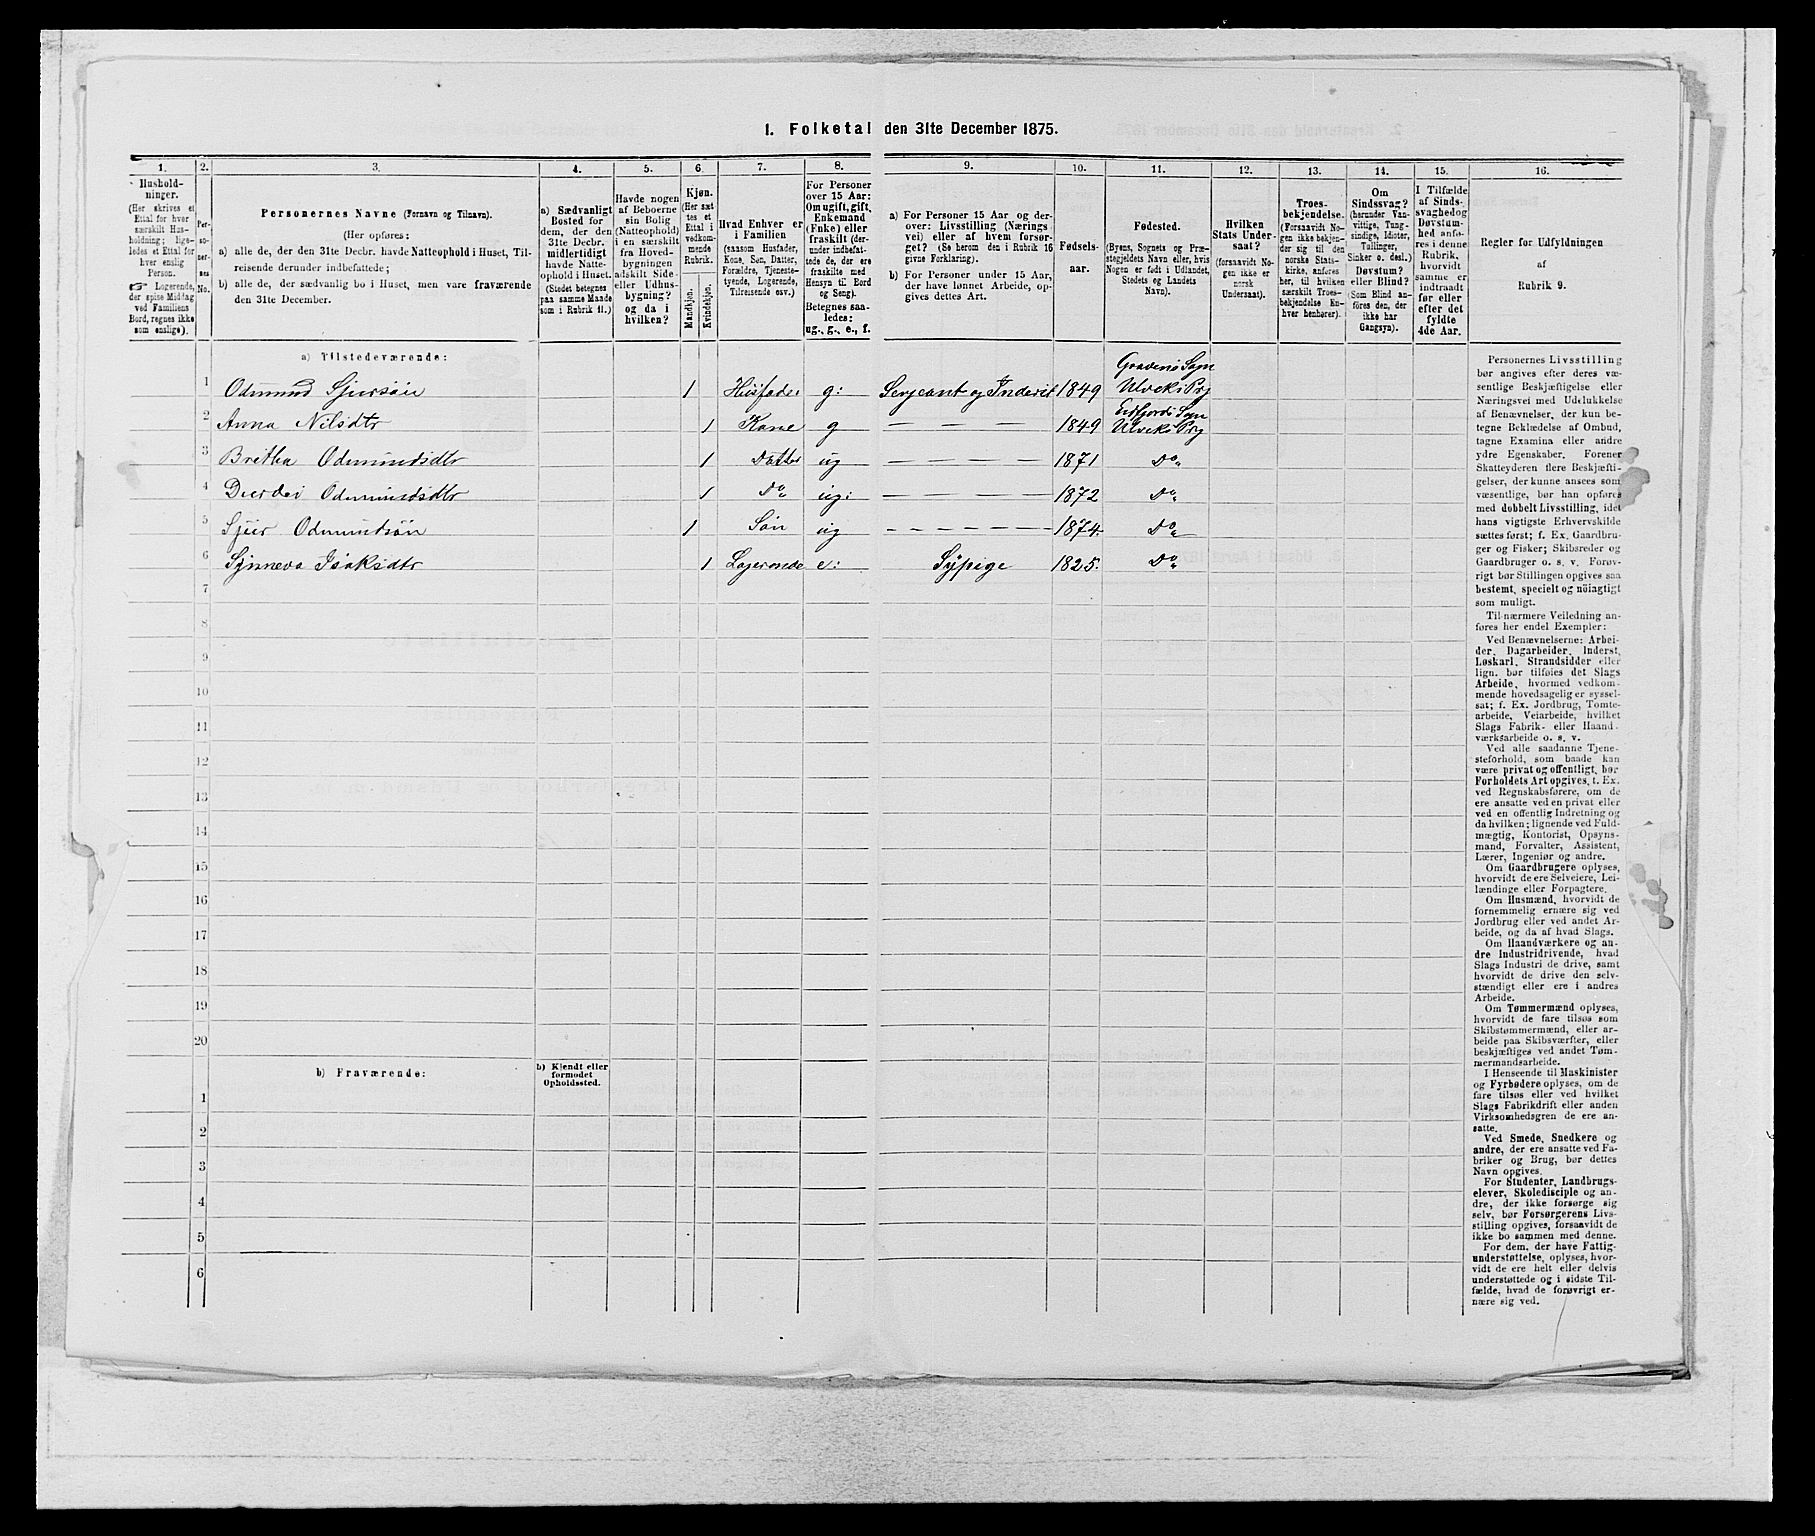 1. Folketal den 31te December 1875.
1. 2. 3. 4. 5. 6. 7. 8. 9. 10. 11. 12. 13. 14. 15. 16.
Hushold-
ninger.
(Her skrives et
Ettal for hver
særskilt Hus-
holdning; lige-
ledes et Ettal for
hver enslig
Person.
☞ Logerende,
der spise Middag
ved Familiens
Bord, regnes ikke
som enslige).
Per-
so-
ner-
nes
No.
Personernes Navne (Fornavn og Tilnavn).
(Her opføres:
a) alle de, der den 31te Decbr. havde Natteophold i Huset, Til-
reisende derunder indbefattede;
b) alle de, der sædvanlig bo i Huset, men vare fraværende
den 31te December.
a) Sædvanligt
Bosted for
dem, der den
31te Decbr.
midlertidigt
havde Natte-
ophold i Huset.
(Stedet betegnes
paa samme Maade
som i Rubrik 11.)
Havde nogen
af Beboerne
sin Bolig
(Natteophold)
i en særskilt
fra Hoved-
bygningen
adskilt Side-
eller Udhus-
bygning?
og da i
hvilken?
Kjøn.
(Her sæt
tes et
Ettal i
vedkom-
mende
Rubrik.
Mandkjøn.
Kvindekjøn.
Hvad Enhver er
i Familien
(saasom Husfader,
Kone, Søn, Datter,
Forældre, Tjeneste-
tyende, Logerende,
Tilreisende osv.)
For Personer
over 15 Aar:
Om ugift, gift,
Enkemand
(Enke) eller
fraskilt (der-
under indbefat-
tede de, der ere
fraskilte med
Hensyn til Bord
og Seng).
Betegnes saa-
ledes:
ug., g., e., f.
a) For Personer 15 Aar og der-
over: Livsstilling (Nærings-
vei) eller af hvem forsør-
get? (Se herom den i Rubrik 16
givne Forklaring).
b) For Personer under 15 Aar,
der have lønnet Arbeide, op-
gives dettes Art.
Fødsels-
aar.
Fødested.
(Byens, Sognets og Præ-
stegjeldets Navn eller, hvis
Nogen er født i Udlandet,
Stedets og Landets
Navn).
Hvilken
Stats Under-
saat?
(forsaavidt No-
gen ikke er
norsk
Undersaat).
Troes-
bekjendelse.
(Forsaavidt No-
gen ikke bekjen-
der sig til den
norske Stats-
kirke, anføres
her, til hvilken
særskilt Troes-
bekjendelse En-
hver henhører).
Om
Sindssvag?
(herunder Van-
vittige, Tung-
sindige, Idioter,
Tullinger,
Sinker o. desl.)
Døvstum?
eller Blind?
(Som Blind an-
føres den, der
ikke har
Gangsyn).
I Tilfælde
af Sinds-
svaghed og
Døvstum-
hed anfø-
res i denne
Rubrik,
hvorvidt
samme er
indtraadt
før eller
efter det
fyldte
4de Aar.
Regler for Udfyldningen
af
Rubrik 9.
a) Tilstedeværende:
1 Odmund Sjursøn 1 Husfader g: Serjeant og Inderst 1849 Gravens Sogn
Ulviks Prg
2 Anna Nilsdtr 1 Kone g — — — — 1849 Eidfjords Sogn
Ulviks Prg
3 Britha Odmundsdtr 1 Datter ug — — — — — 1871 Do
4 Odmundsdtr 1 Do ug: — — — — — 1872 Do
5 Sjur Odmundsøn 1 Søn ug — — — — — 1874. Do
6 Synneva Isaksdtr 1 Logerende e: Sypige 1825. Do
7
8
9
10
11
12
13
14
15
16
17
18
19
20
b) Fraværende:
b) Kjendt eller
formodet
Opholdssted.
1
2
3
4
5
6
Personernes Livsstilling
bør angives efter deres væ-
sentlige Beskjæftigelse eller
Næringsvei med Udelukkelse
af Benævnelser, der kun be-
tegne Beklædelse af Ombud,
tagne Examina eller andre
ydre Egenskaber. Forener
Skatteyderen flere Beskjæfti-
gelser, der kunne ansees som
væsentlige, bør han opføres
med dobbelt Livsstilling, idet
hans vigtigste Erhvervskilde
sættes først; f. Ex. Gaardbru-
ger og Fisker; Skibsreder og
Gaardbruger o. s. v. Forøv-
rigt bør Stillingen opgives saa
bestemt, specielt og nöiagtigt
som muligt.
Til nærmere Veiledning an-
føres her endel Exempler:
Ved Benævnelserne: Arbei-
der, Dagarbeider, Inderst,
Løskarl, Strandsidder eller
lign. bør tilføies det Slags
Arbeide, hvormed vedkom-
mende hovedsagelig er syssel-
sat; f. Ex. Jordbrug, Tomte-
arbeide, Veiarbeide, hvilket
Slags Fabrik- eller Haand-
værksarbeide o. s. v.
Ved alle saadanne Tjene-
steforhold, som baade kan
være privat og offentligt, bør
Forholdets Art opgives, t. Ex.
ved Regnskabsførere, om de
ere ansatte ved en privat eller
ved en offentlig Indretning og
da hvilken; lignende ved Fuld-
mægtig, Kontorist, Opsyns-
mand, Forvalter, Assistent,
Lærer, Ingeniør og andre.
Om Gaardbrugere oplyses,
hvorvidt de ere Selveiere, Lei-
lændinge eller Forpagtere.
Om Husmænd, hvorvidt de
fornemmelig ernære sig ved
Jordbrug eller ved andet Ar-
beide, og da af hvad Slags.
Om Haandværkere og an-
dre Industridrivende, hvad
Slags Industri de drive, samt
hvorvidt de drive den selv-
stændigt eller ere i andres
Arbeide.
Om Tømmermænd oplyses,
hvorvidt de fare tilsøs som
Skibstømmermænd, eller ar-
beide paa Skibsværfter, eller
beskjæftiges ved andet Tøm-
mermandsarbeide.
I Henseende til Maskinister
og Fyrbødere oplyses, om de
fare tilsøs eller ved hvilket
Slags Fabrikdrift eller anden
Virksomhedsgren de ere an-
satte.
Ved Smede, Snedkere og
andre, der ere ansatte ved Fa-
briker og Brug, bør dettes
Navn opgives.
For Studenter, Landbrugs-
elever, Skoledisciple og an-
dre, der ikke forsørge sig
selv, bør Forsørgerens Livs-
stilling opgives, forsaavidt de
ikke bo sammen med denne.
For dem, der have Fattig-
understøttelse, oplyses, hvor-
vidt de ere helt eller delvis
understøttede og i sidste Til-
fælde, hvad de forøvrigt er-
nære sig ved.